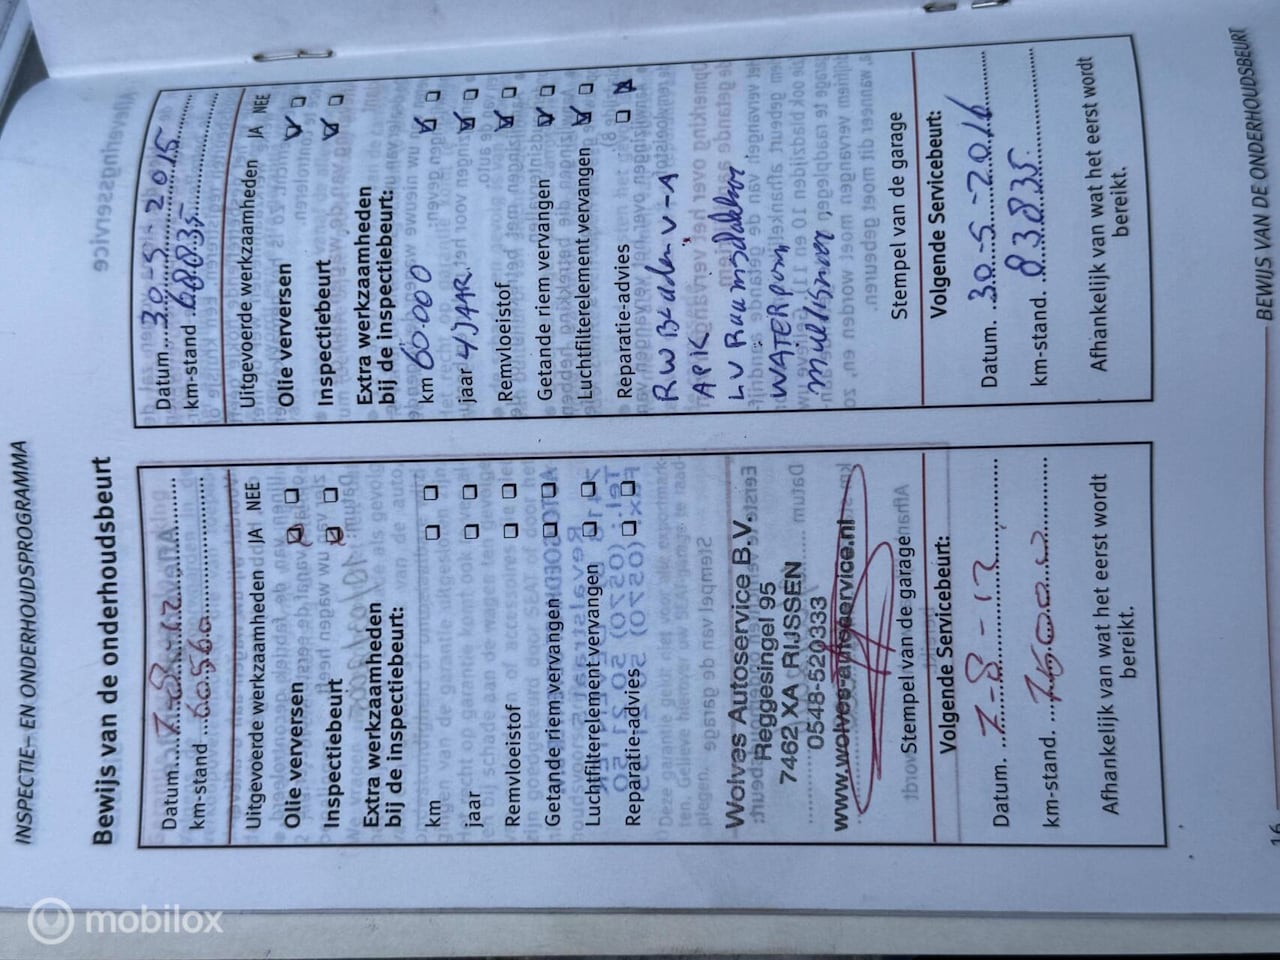 INSPECTIE- EN ONDERHOUDSPROGRAMMA
Bewijs van de onderhoudsbeurt
Datum....7-8-12
km-stand ..60560
Uitgevoerde werkzaamheden JA NEE
Olie verversen
Inspectiebeurt
Extra werkzaamheden
bij de inspectiebeurt:
km
jaar
Remvloeistof
Getande riem vervangen
Luchtfilterelement vervangen
Reparatie-advies
Wolves Autoservice B.V.
Reggesingel 95
7462 XA RIJSSEN
0548-520333
www.wolves-autoservice.nl
Stempel van de garage
Volgende Servicebeurt:
Datum. ..7-8-13
km-stand. ..75000
Afhankelijk van wat het eerst wordt
bereikt.
Datum...30-5-2015
km-stand 68835
Uitgevoerde werkzaamheden JA NEE
Olie verversen
Inspectiebeurt
Extra werkzaamheden
bij de inspectiebeurt:
km 60.000
jaar 4 JAAR.
Remvloeistof
Getande riem vervangen
Luchtfilterelement vervangen
Reparatie-advies
APK
WATERPOMP
multisnaar
Stempel van de garage
Volgende Servicebeurt:
Datum. ..30-5-2016
km-stand. ..83835
Afhankelijk van wat het eerst wordt
bereikt.
16
BEWIJS VAN DE ONDERHOUDSBEURT
mobilox